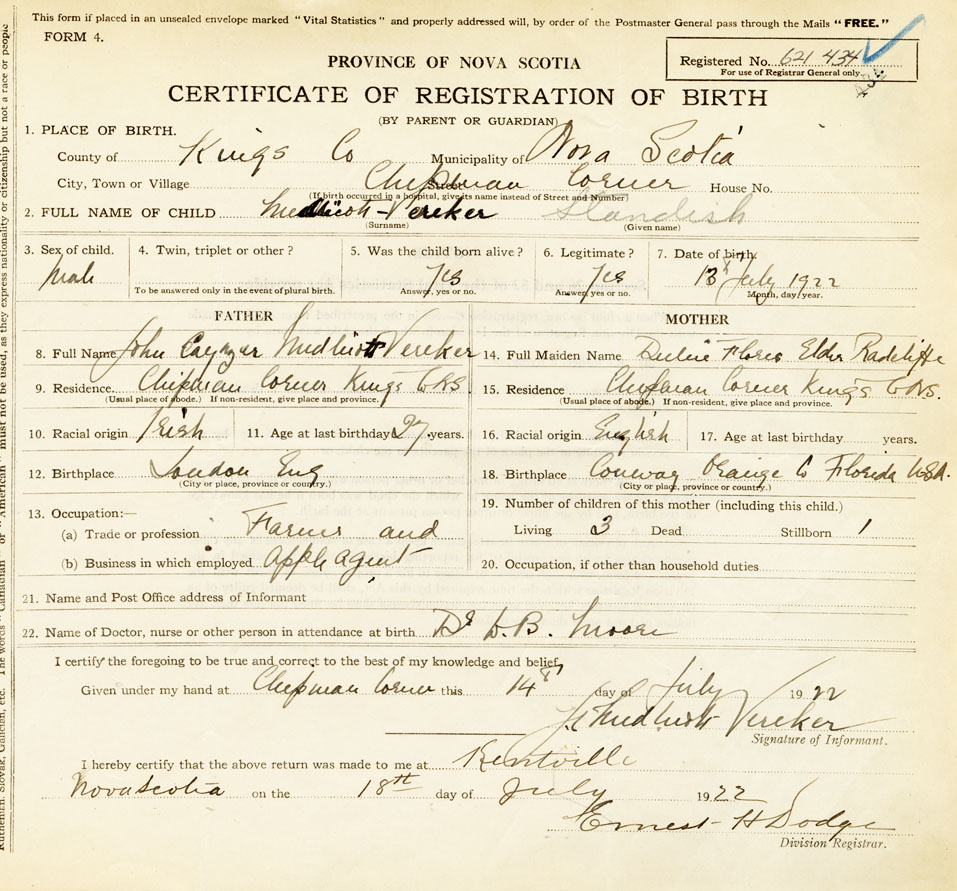 This form if placed in an unsealed envelope marked "Vital Statistics" and properly addressed will, by order of the Postmaster General pass through the Mails "FREE."
FORM 4.
Registered No. 621 434
For use of Registrar General only
PROVINCE OF NOVA SCOTIA
CERTIFICATE OF REGISTRATION OF BIRTH
(BY PARENT OR GUARDIAN)
1. PLACE OF BIRTH.
County of Kings Co Municipality of Nova Scotia
City, Town or Village Chipman Corner Street House No.
(If birth occurred in a hospital, give its name instead of Street and Number)
2. FULL NAME OF CHILD Medlicott-Vereker Standish
(Surname) (Given name)
3. Sex of child. Male 4. Twin, triplet or other? To be answered only in the event of plural birth. 5. Was the child born alive? Yes Answer, yes or no. 6. Legitimate? Yes Answer, yes or no. 7. Date of birth. 13 July 1922 Month, day, year.
FATHER
8. Full Name John Medlicott Vereker
9. Residence Chipman Corner Kings Co NS.
(Usual place of abode.) If non-resident, give place and province.
10. Racial origin Irish 11. Age at last birthday 27 years.
12. Birthplace London Eng
(City or place, province or country.)
13. Occupation:—
(a) Trade or profession Farmer and
(b) Business in which employed Apple agent
MOTHER
14. Full Maiden Name Flores Elder Radcliffe
15. Residence Chipman Corner Kings Co NS.
(Usual place of abode.) If non-resident, give place and province.
16. Racial origin English 17. Age at last birthday years.
18. Birthplace Conway Orange Co Florida USA.
(City or place, province or country.)
19. Number of children of this mother (including this child.)
Living 3 Dead Stillborn 1
20. Occupation, if other than household duties
21. Name and Post Office address of Informant
22. Name of Doctor, nurse or other person in attendance at birth Dr D.B. Moore
I certify the foregoing to be true and correct to the best of my knowledge and belief,
Given under my hand at Chipman Corner this 14th day of July 1922
Medlicott Vereker
Signature of Informant.
I hereby certify that the above return was made to me at Kentville
Nova Scotia on the 18th day of July 1922
Ernest H Dodge
Division Registrar.